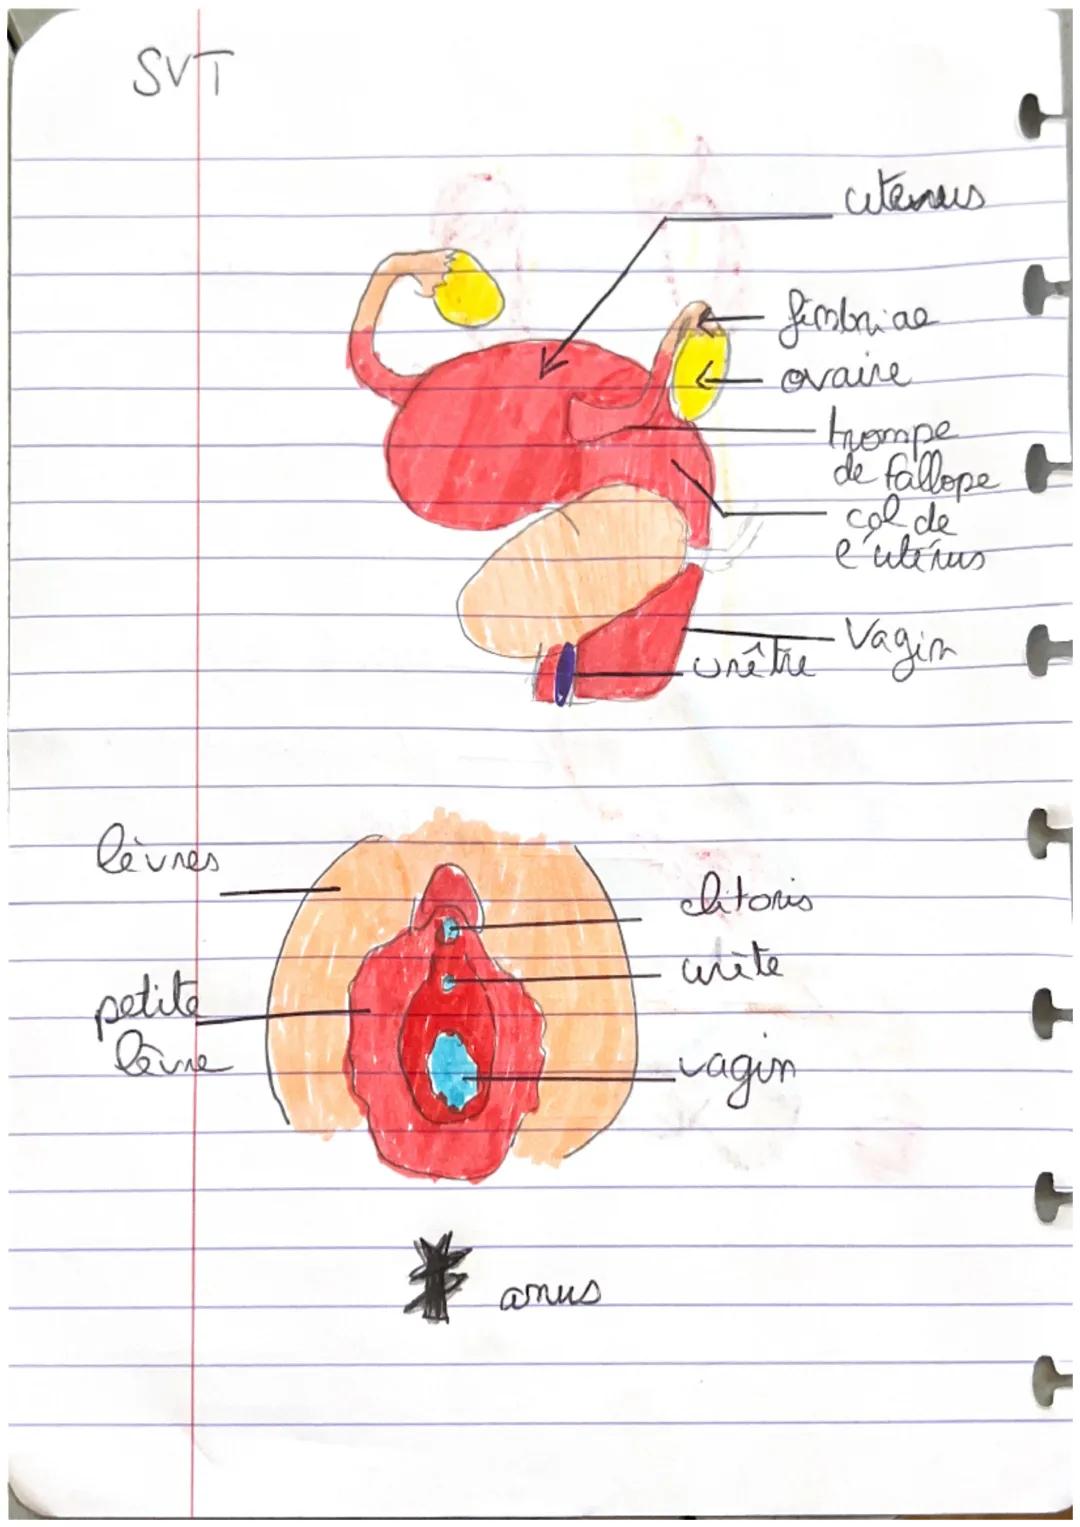 SVT
uterus
fimbriae
ovaire
trompe
de fallope
col de
l'utérus
Vagin
urêtre
lèvres
clitoris
urète
petite
lèvre
vagin
anus